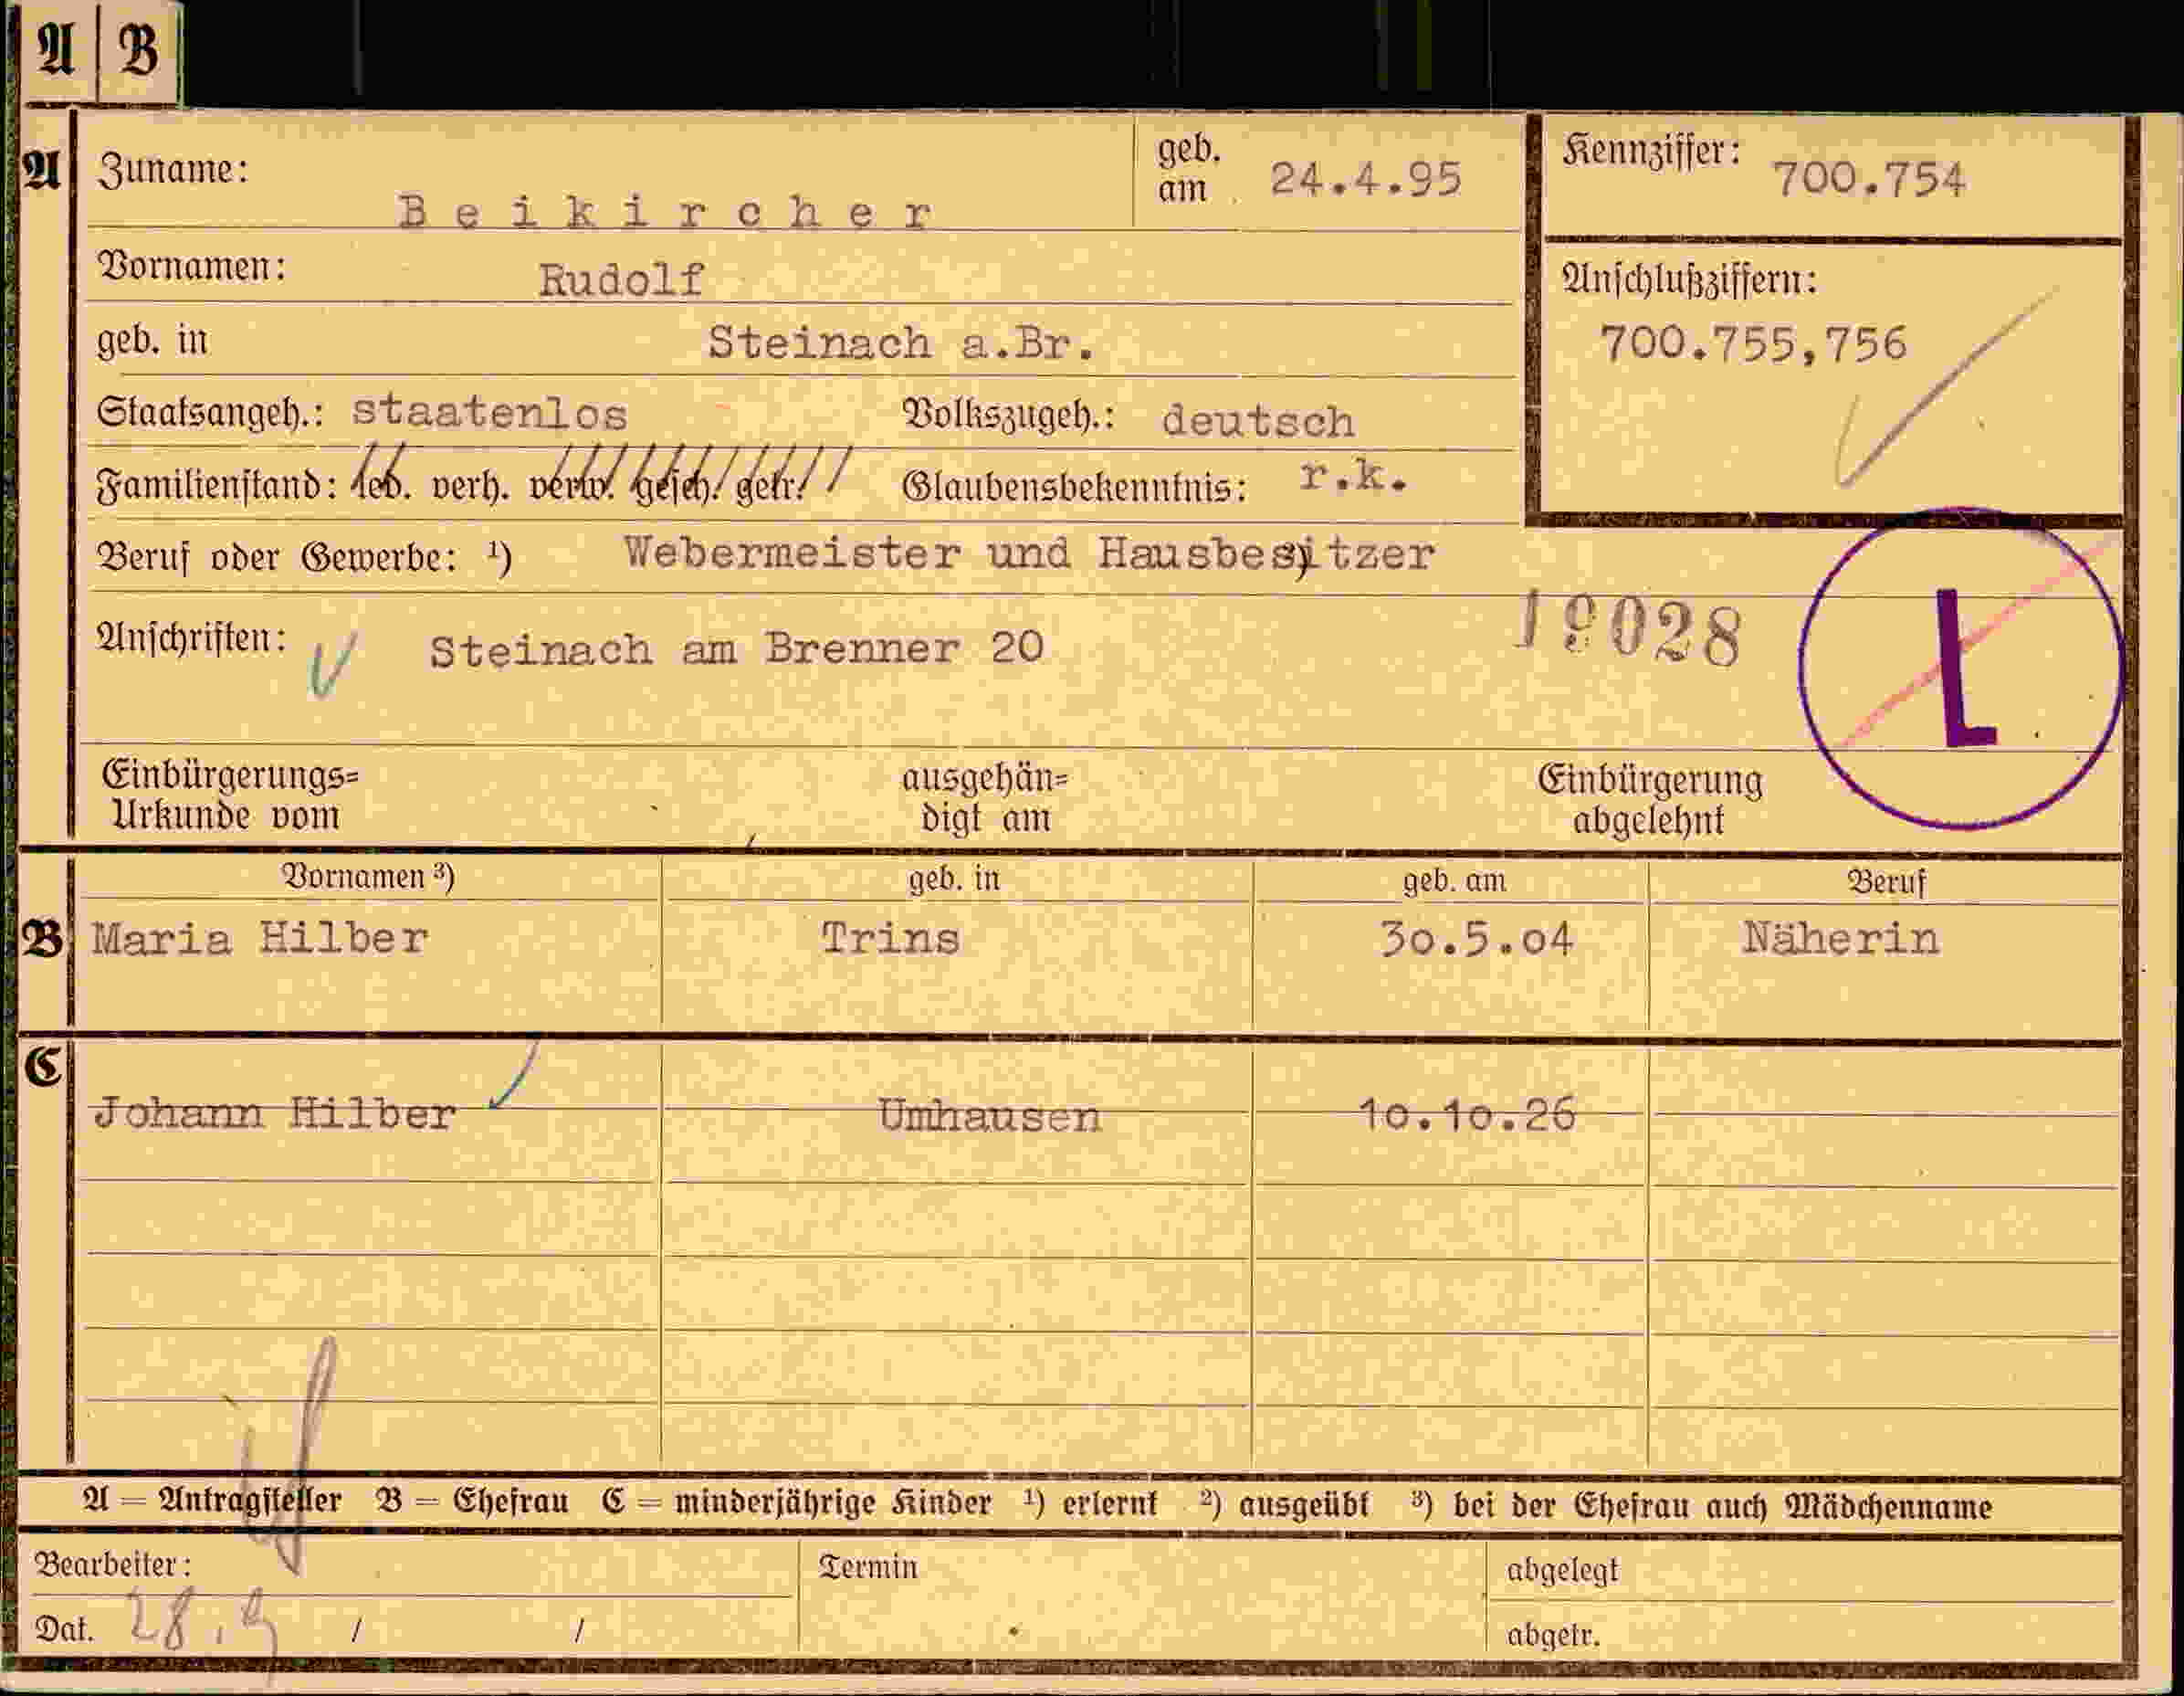 A B
A Zuname: Beikircher geb. am 24.4.95 Kennziffer: 700.754
Vornamen: Rudolf Anschlußziffern:
geb. in Steinach a.Br. 700.755,756
Staatsangeh.: staatenlos Volkszugeh.: deutsch
Familienstand: led. verh. verw. gesch. getr. Glaubensbekenntnis: r.k.
Beruf oder Gewerbe: ¹) Webermeister und Hausbesitzer
Anschriften: Steinach am Brenner 20 19028 L
Einbürgerungs= ausgehän= Einbürgerung
Urkunde vom digt am abgelehnt
Vornamen ³) geb. in geb. am Beruf
B Maria Hilber Trins 30.5.04 Näherin
C
Johann Hilber Umhausen 10.10.26
A = Antragsteller B = Ehefrau C = minderjährige Kinder ¹) erlernt ²) ausgeübt ³) bei der Ehefrau auch Mädchenname
Bearbeiter: Termin abgelegt
Dat. 28.9 / / abgetr.